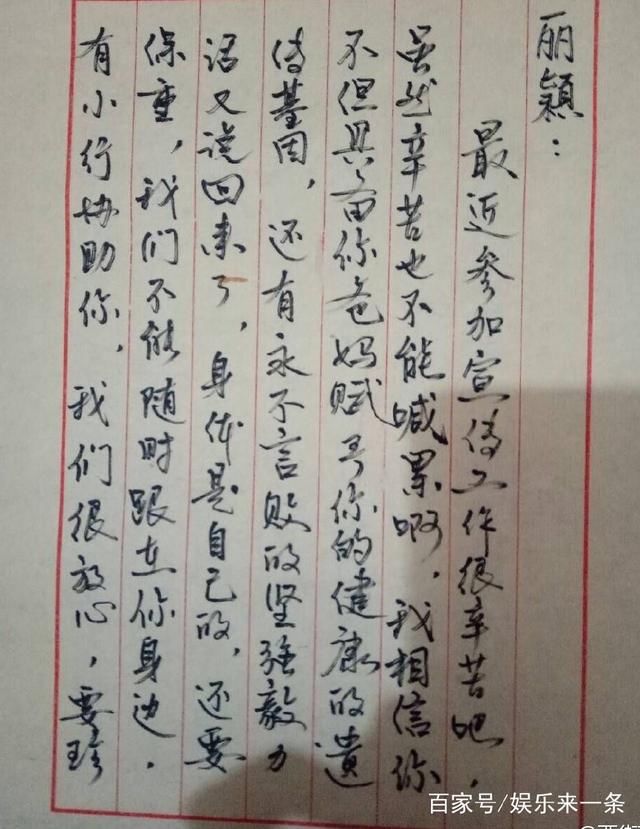 丽颖：
最近参加宣传工作很辛苦吧，
虽然辛苦也不能喊累啊，我相信你
不但具备你爸妈赋予你的健康的遗
传基因，还有永不言败的坚强毅力
话又说回来了，身体是自己的，还要
保重，我们不能随时跟在你身边，
有小行协助你，我们很放心，要珍
百家号/娱乐来一条